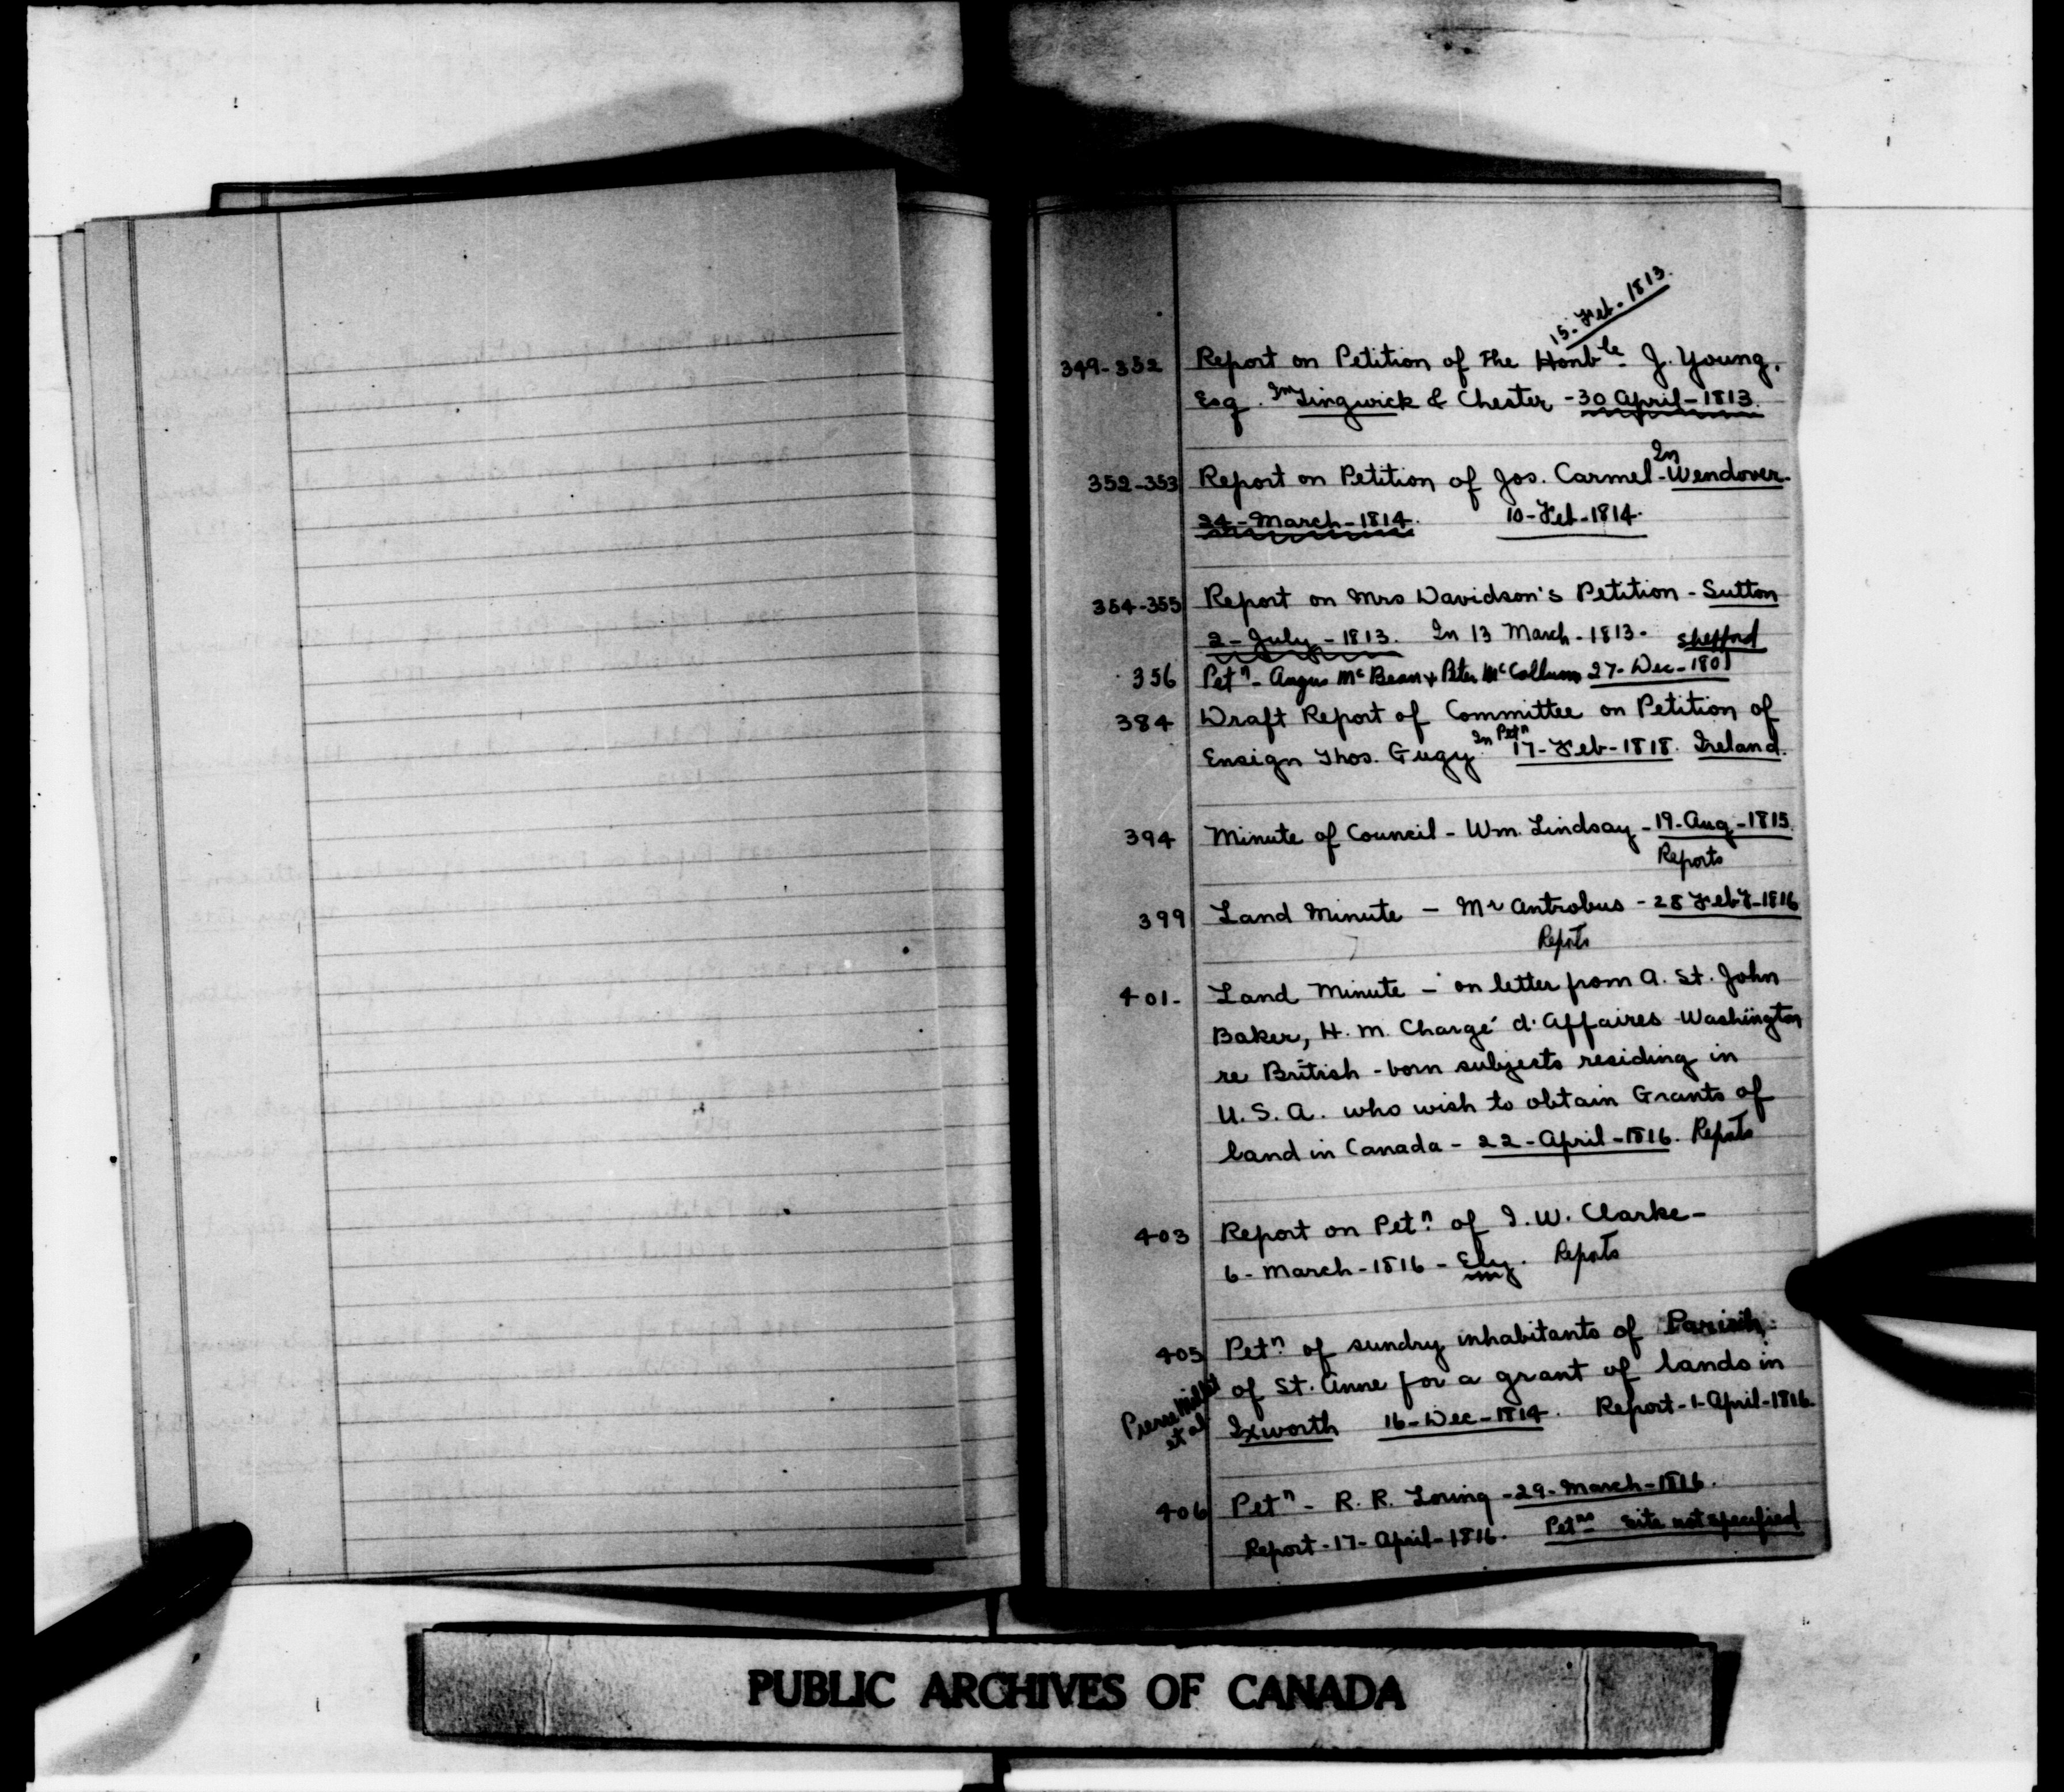 15-Feb-1813.
349-352 Report on Petition of The Honble J. Young,
Esq. In Lingwick & Chester - 30 April-1813.
In
352-353 Report on Petition of Jos. Carmel - Wendover.
24-March-1814. 10-Feb-1814.
354-355 Report on Mrs Davidson's Petition - Sutton
2-July-1813. In 13 March-1813. Shefford
356 Petn- Angus McBean & Peter McCallum 27-Dec-1801
384 Draft Report of Committee on Petition of
Ensign Thos. Gugy. In Petn 17-Feb-1818. Ireland.
394 Minute of Council - Wm. Lindsay - 19-Aug-1815.
Reports
399 Land Minute - Mr Antrobus - 28 Feby-1816
Repts
401- Land Minute - on letter from A. St. John
Baker, H. M. Chargé d'Affaires Washington
re British-born subjects residing in
U. S. A. who wish to obtain Grants of
land in Canada - 22-April-1816. Repts
403 Report on Petn. of I. W. Clarke-
6-March-1816 - Ely. Reports
405 Petn. of sundry inhabitants of Parish
of St. Anne for a grant of lands in
Pierre et al
Ixworth 16-Dec-1814. Report-1-April-1816.
406 Petn - R. R. Loring - 29-March-1816.
Report-17-April-1816. Petns Site not specified
PUBLIC ARCHIVES OF CANADA